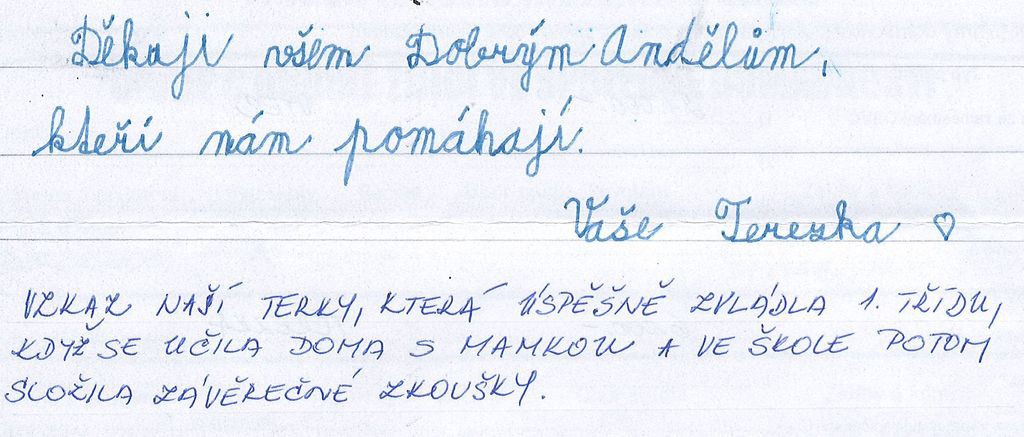 Děkaji všem Dobrým Andělům,
kteří nám pomáhají.
Vaše Terezka ♡
VZKAZ NAŠÍ TERKY, KTERÁ ÚSPĚŠNĚ ZVLÁDLA 1. TŘÍDU,
KDYŽ SE UČILA DOMA S MAMKOU A VE ŠKOLE POTOM
SLOŽILA ZÁVĚREČNÉ ZKOUŠKY.